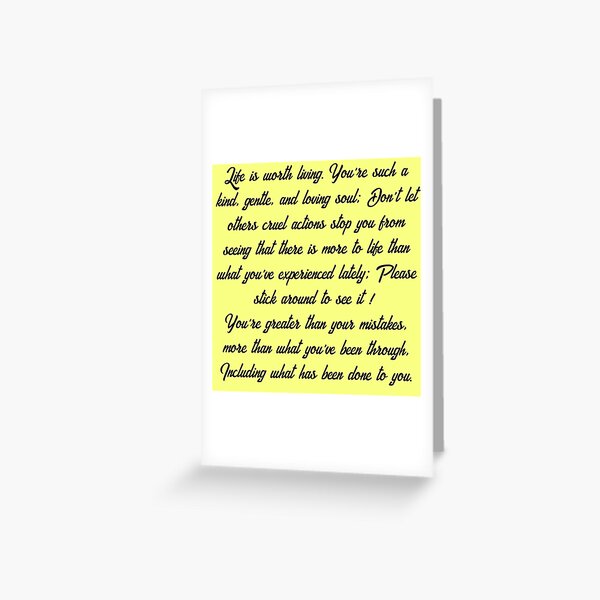 Life is worth living. You're such a
kind, gentle, and loving soul; Don't let
others cruel actions stop you from
seeing that there is more to life than
what you've experienced lately; Please
stick around to see it !
You're greater than your mistakes,
more than what you've been through,
Including what has been done to you.